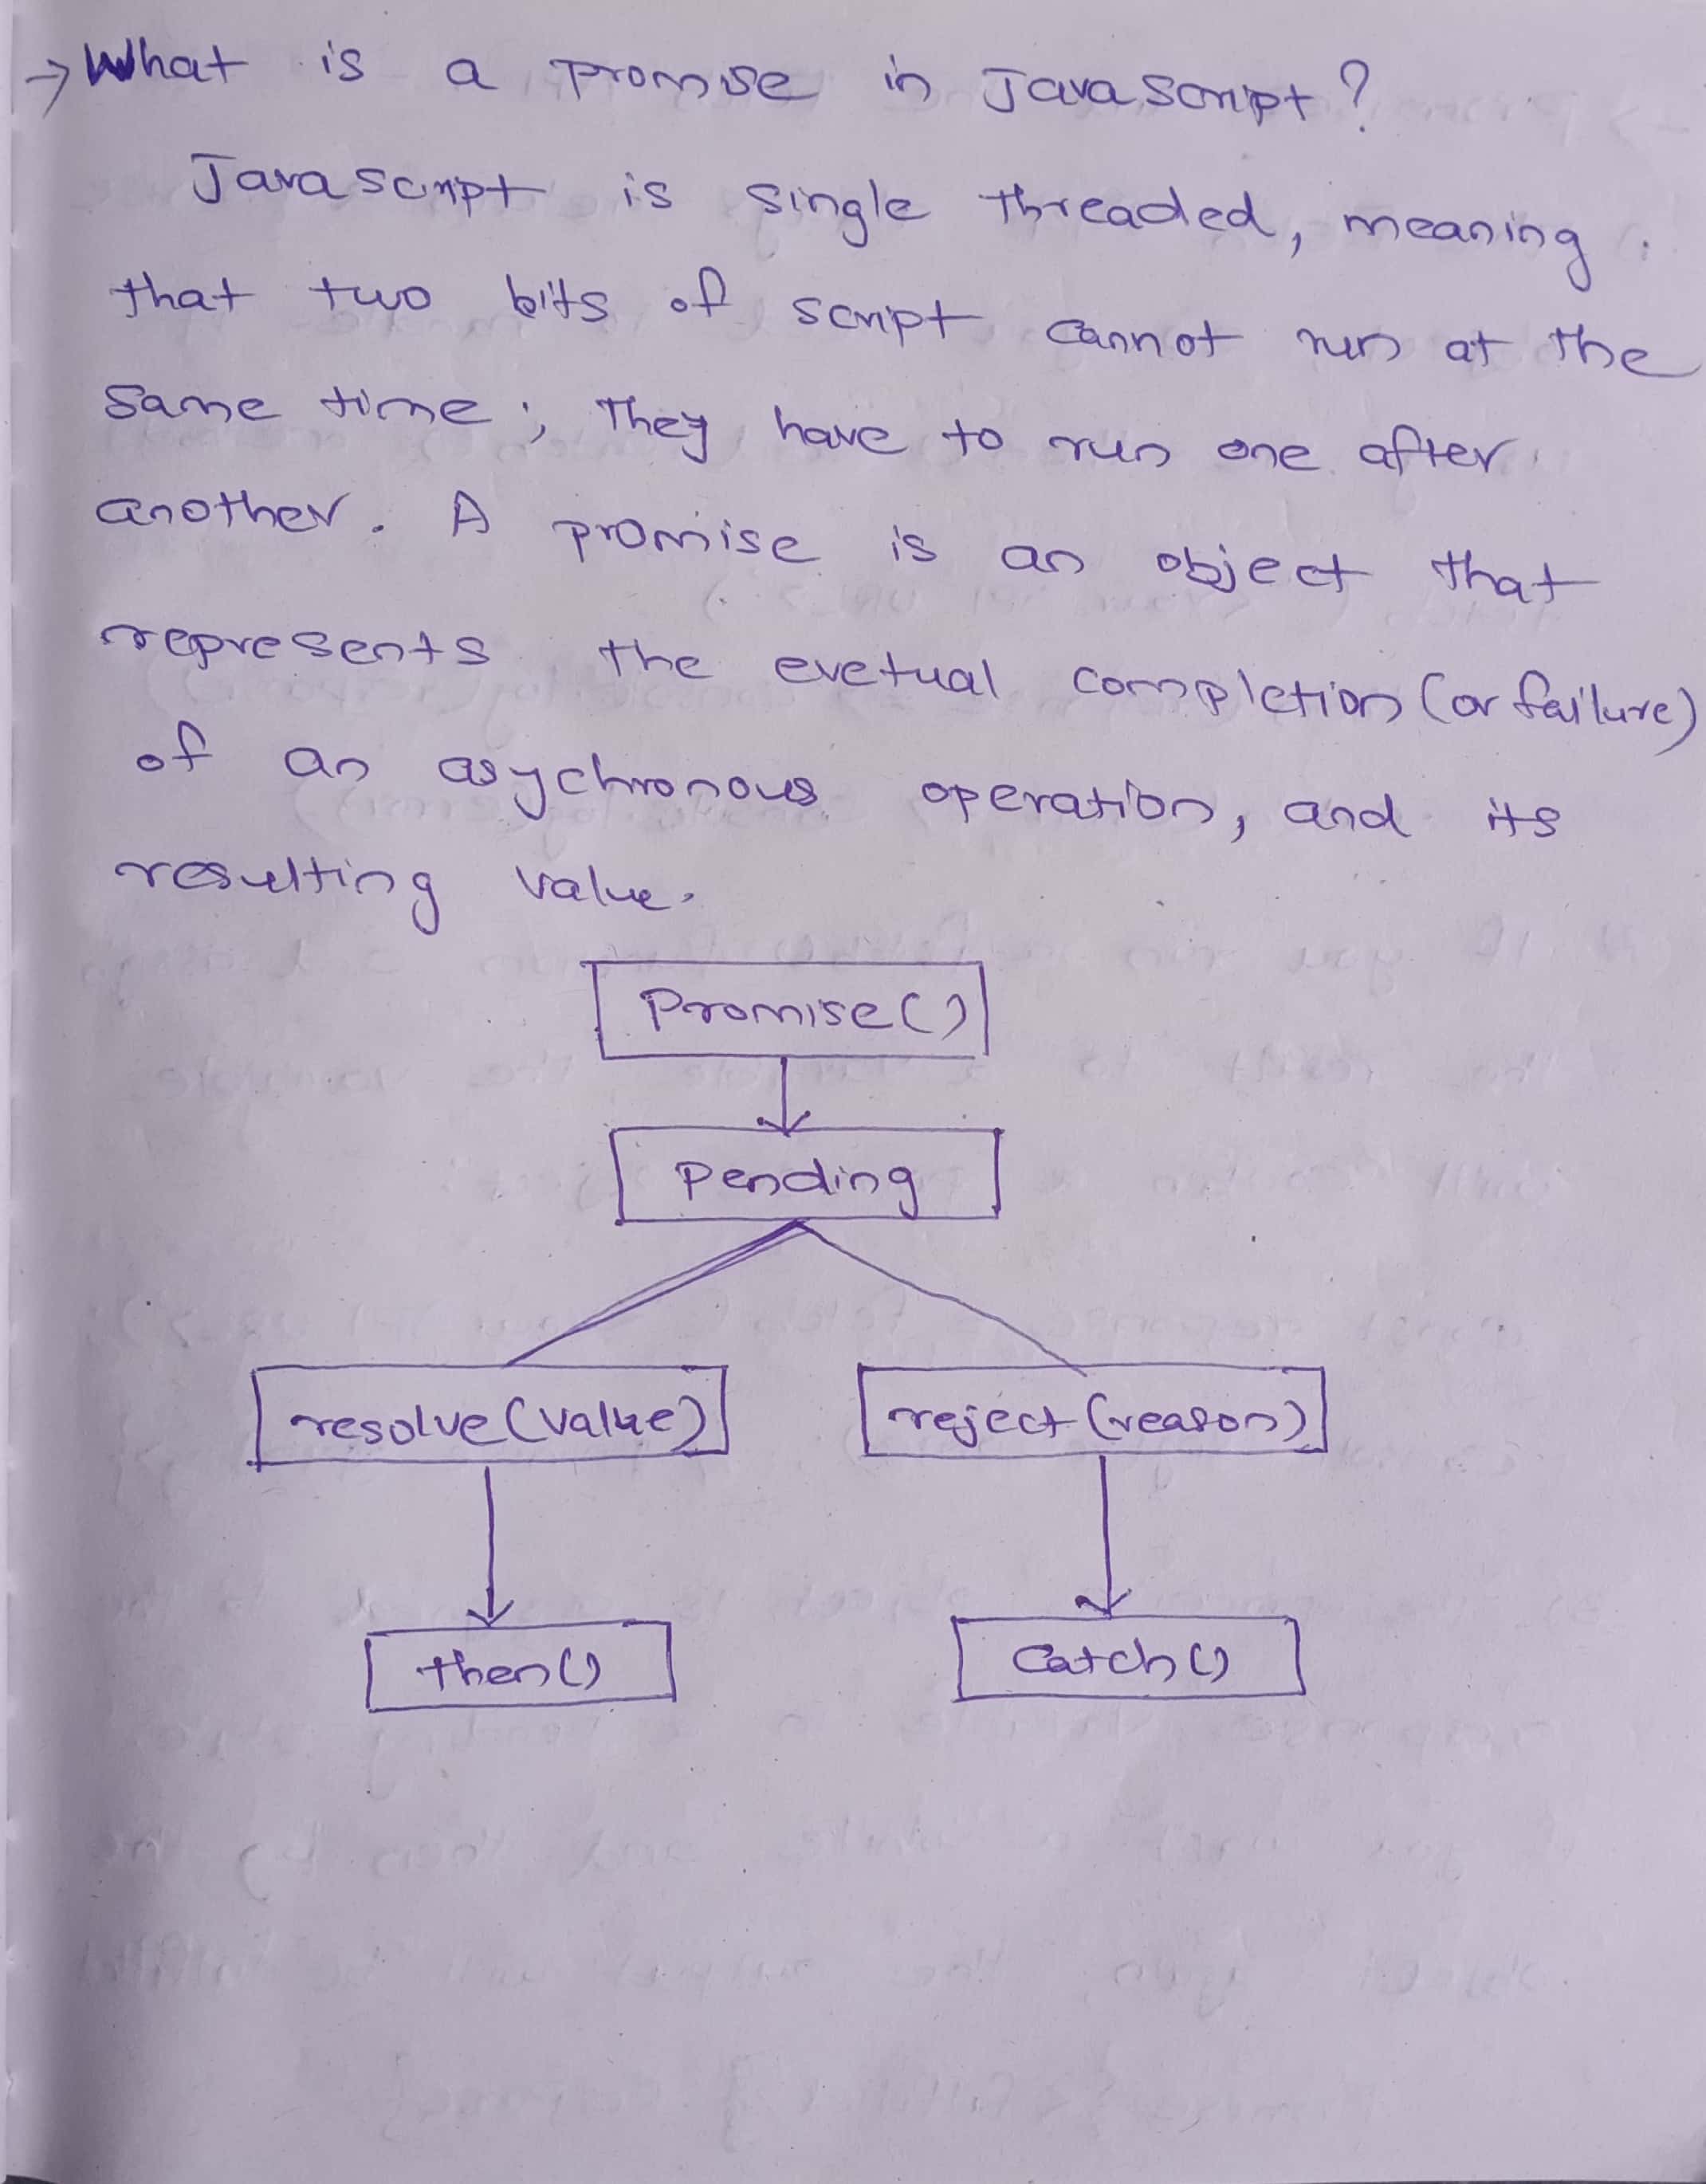 → What is a promise in JavaScript?
Javascript is single threaded, meaning
that two bits of script cannot run at the
same time; they have to run one after
another. A promise is an object that
represents the evetual completion (or failure)
of an asychronous operation, and its
resulting value.
Promise()
Pending
resolve(value) reject(reason)
then() Catch()